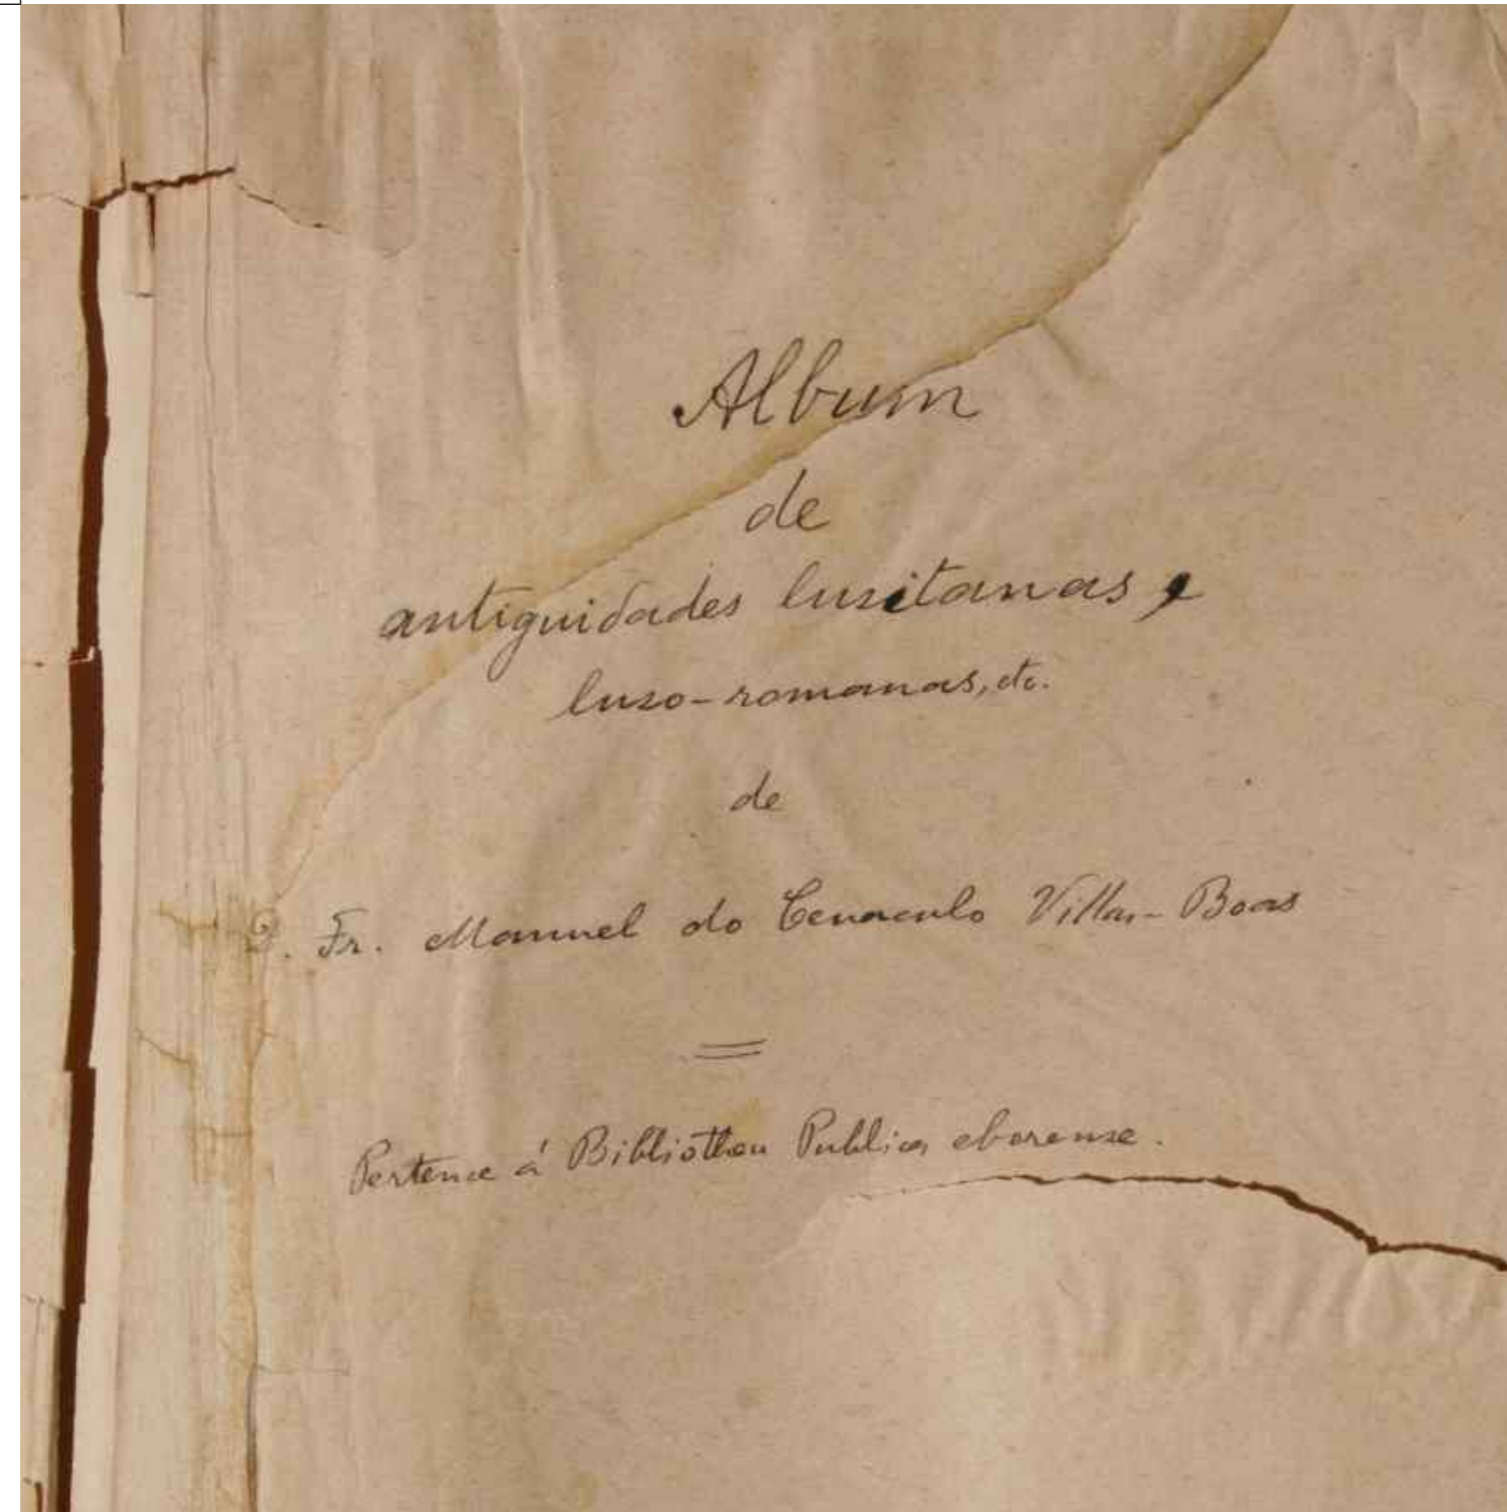 Album
de
antiguidades lusitanas e
luso-romanas, etc.
de
D. Fr. Manuel do Cenaculo Villas-Boas
Pertence á Bibliotheca Publica eborense.